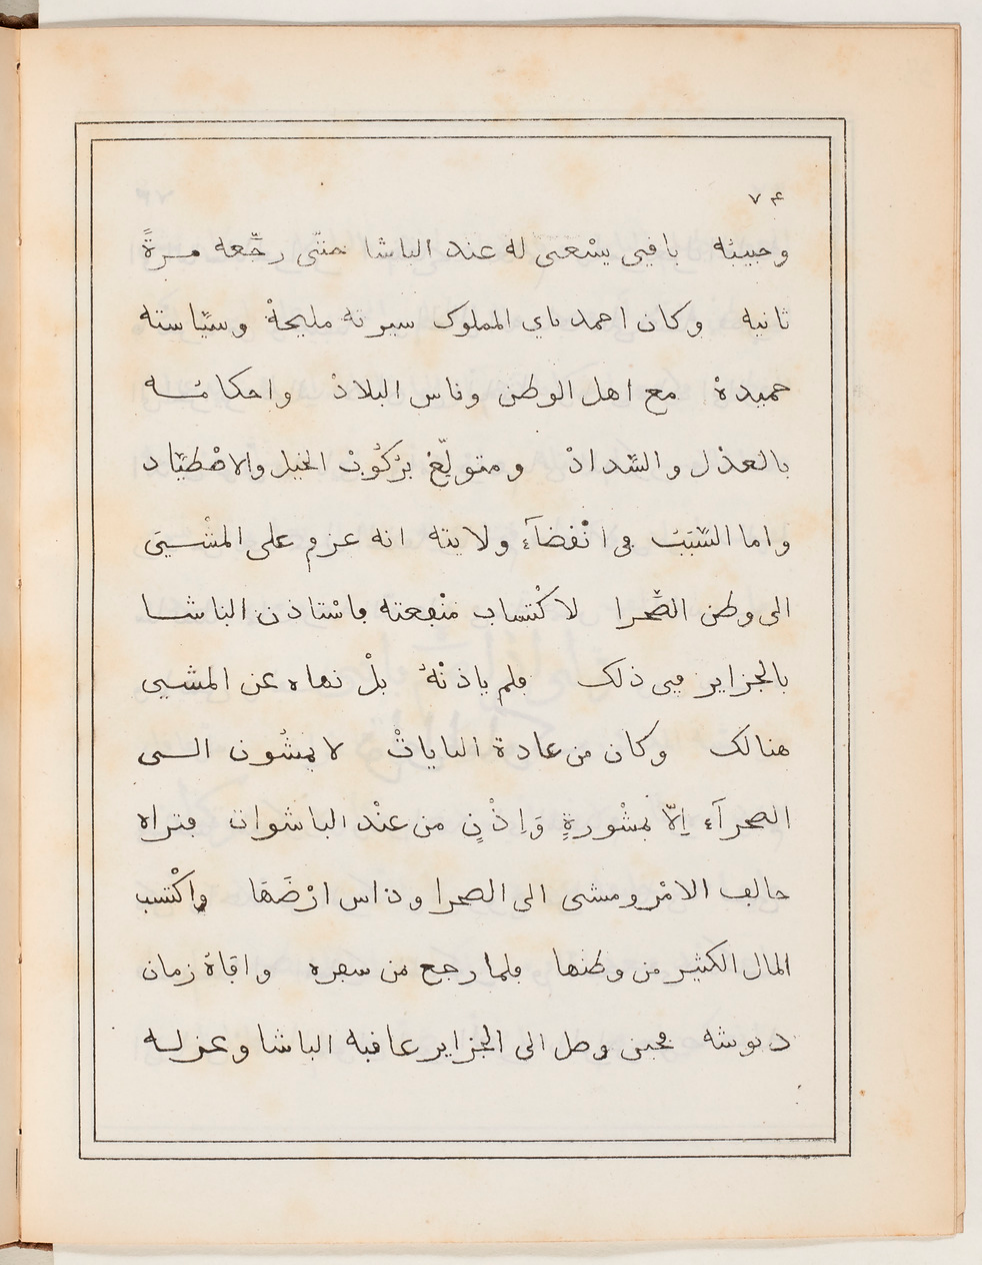 ٧۴
وحبيبه بافي يسْعَى له عند الباشا حتّى رجّعه مرةً
ثانيه وكان احمد باي المملوك سيرته مليحةْ وسيّاسته
حميدةْ مع اهل الوطن وناس البلادْ واحكامُه
بالعدْل والسّدادْ ومتولّع برُكُوبْ الخيل والاصْطيّاد
واما السّبَبْ في انْفضآء ولايته انه عزم على المشْيىَ
الى وطن الصّحرا لاكْتساب منْفعته فاسْتاذن الباشا
بالجزاير في ذلك فلم ياذنْهُ بلْ نهاه عن المشيى
هنالك وكان من عادة الباياتْ لا يمشُون الى
الصحرآء إلّا بمشْورةٍ وَإذْنٍ من عنْد الباشوات فتراه
خالف الامْر ومشى الى الصحرا وداس ارْضَهَا واكْتسب
المال الكثير من وطنها فلما رجع من سفره وافاهْ زمان
دنوشه فحين وصل الى الجزاير عاقبه الباشا وعزله